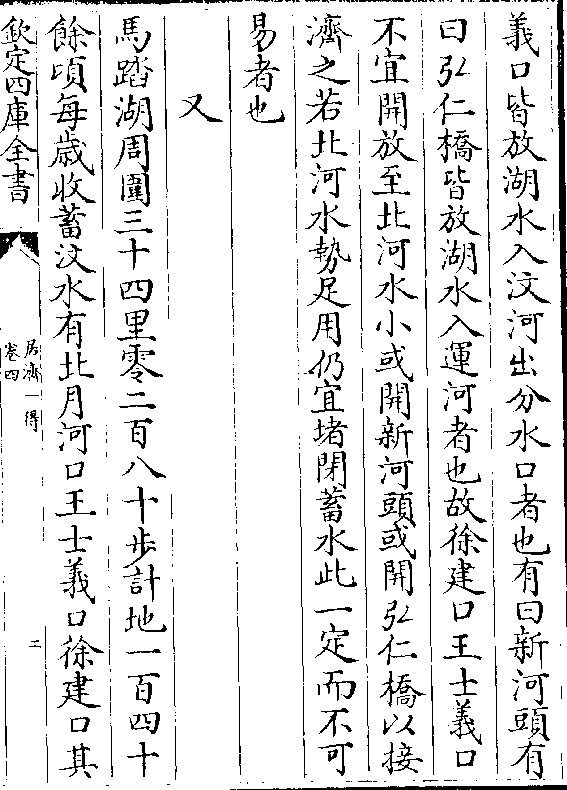 義口皆放湖水入汶河出分水口者也有曰新河頭有
曰弘仁橋皆放湖水入運河者也故徐建口王士義口
不宜開放至北河水小或開新河頭或開弘仁橋以接
濟之若北河水勢足用仍宜堵閉蓄水此一定而不可
易者也
又
馬踏湖周圍三十四里零二百八十步計地一百四十
餘頃每歲收蓄汶水有北月河口王士義口徐建口其
欽定四庫全書
居濟一得
卷四
二